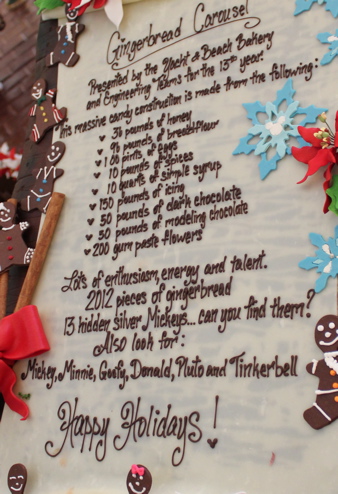 Gingerbread Carousel
Presented by the Yacht & Beach Bakery
and Engineering Teams for the 13th year.
This massive candy construction is made from the following:
♥ 36 pounds of honey
♥ 96 pounds of breadflour
♥ 100 pints of eggs
♥ 10 pounds of spices
♥ 10 quarts of simple syrup
♥ 150 pounds of icing
♥ 50 pounds of dark chocolate
♥ 50 pounds of modeling chocolate
♥ 200 gum paste flowers
Lots of enthusiasm, energy and talent.
2012 pieces of gingerbread
13 hidden silver Mickeys... can you find them?
Also look for:
Mickey, Minnie, Goofy, Donald, Pluto and Tinkerbell
Happy Holidays!